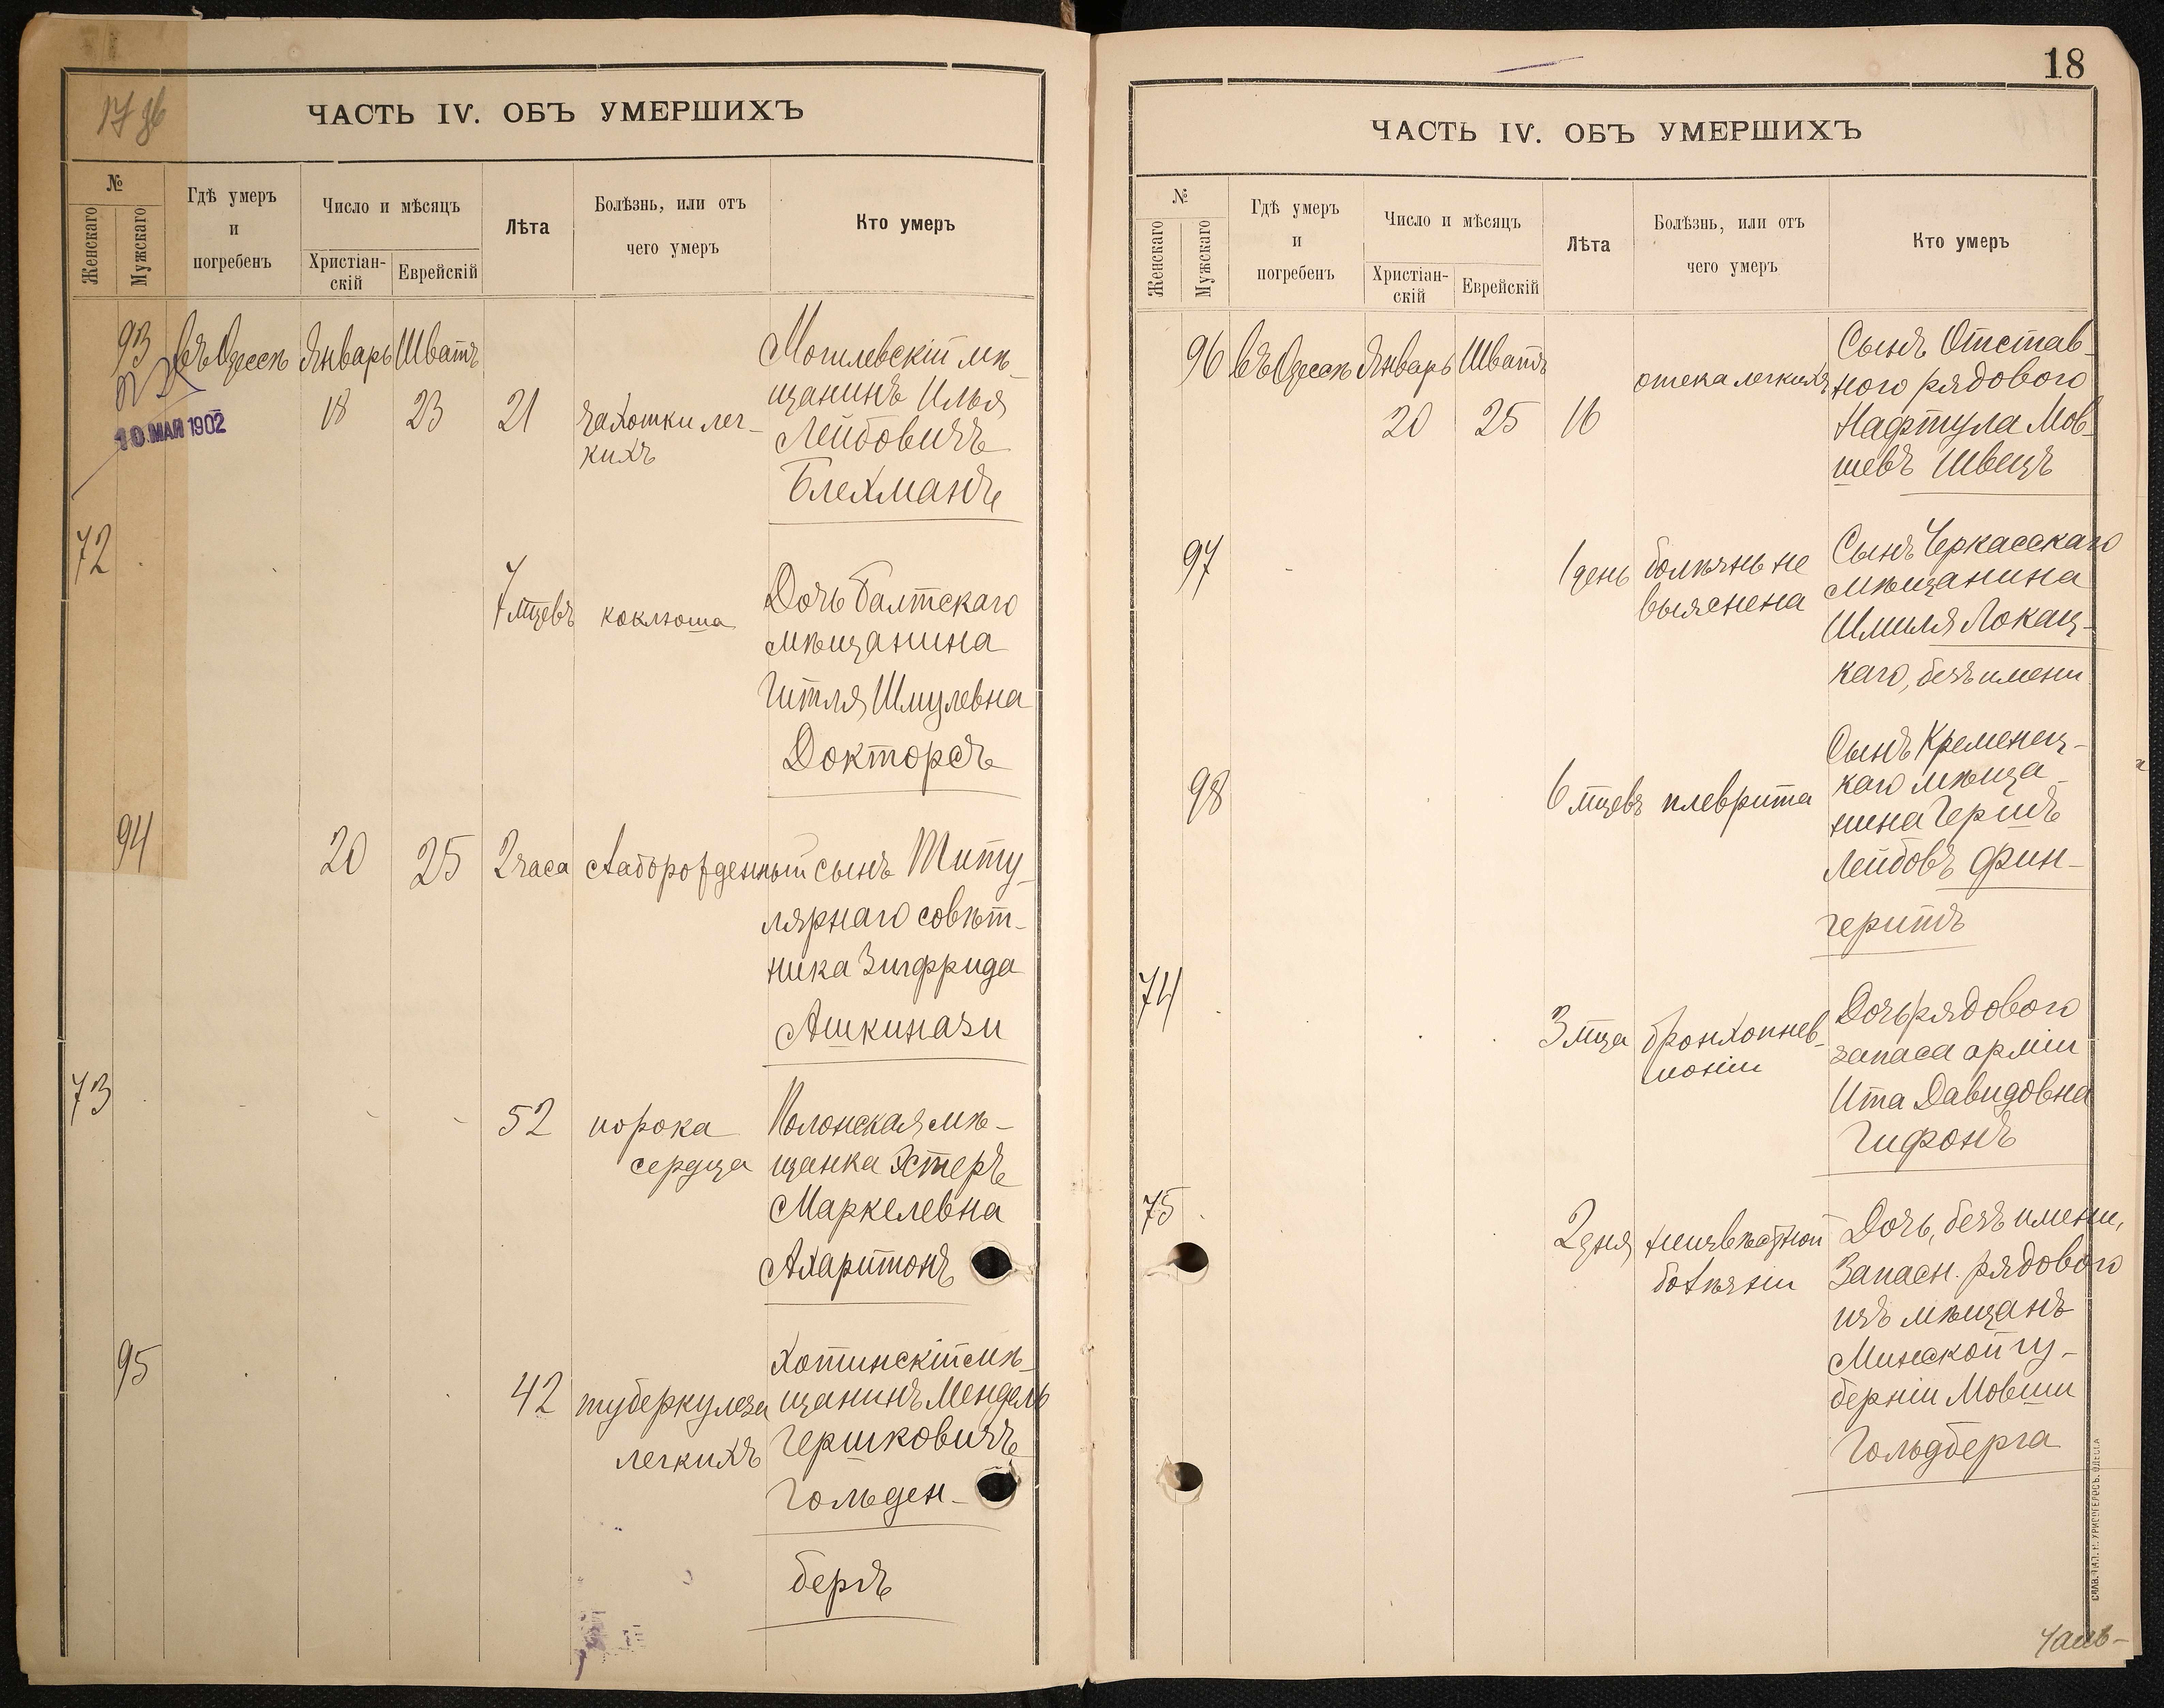 ЧАСТЬ IV. ОБЪ УМЕРШИХЪ
№
Женскаго
Мужскаго
Гдѣ умеръ
и
погребенъ
Число и мѣсяцъ
Христіан-
скій
Еврейскій
Лѣта
Болѣзнь, или отъ
чего умеръ
Кто умеръ
93 въ Одессѣ Январь Шватъ
18 23 21
чахотки лег-
кихъ
Могилевскій мѣ-
щанинъ Илья
Лейбовичъ
Блехманъ
10 МАЯ 1902
72
7 мцевъ коклюша
Дочь Балтскаго
мѣщанина
Гитля Шмулевна
Докторъ
94 20 25 2 часа слаборожденный сынъ Титу-
лярнаго совѣт-
ника Зигфрида
Ашкинази
73
52 порока
сердца
Полонская мѣ-
щанка Эстеръ
Маркелевна
Ахаритонъ
95
42 туберкулеза
легкихъ
Хотинскій мѣ-
щанинъ Мендель
Гершковичъ
Гольден-
бергъ
18
ЧАСТЬ IV. ОБЪ УМЕРШИХЪ
№
Женскаго
Мужскаго
Гдѣ умеръ
и
погребенъ
Число и мѣсяцъ
Христіан-
скій
Еврейскій
Лѣта
Болѣзнь, или отъ
чего умеръ
Кто умеръ
96 въ Одессѣ Январь Шватъ
20 25 16
отека легкихъ
Сынъ Отстав-
ного рядового
Нафтула Мов-
шевъ Швецъ
97
1 день болѣзнь не
выяснена
Сынъ Черкасскаго
мѣщанина
Шмиля Локац-
каго, безъ имени
98
6 мцевъ плеврита
Сынъ Кременец-
каго мѣща-
нина Гершъ
Лейбовъ Фин-
геритъ
74
3 мца бронхопнев-
моніи
Дочь рядового
запаса арміи
Ита Давидовна
Гифонъ
75
2 дня неизвѣстной
болѣзни
Дочь, безъ имени,
Запасн. рядового
изъ мѣщанъ
Минской гу-
берніи Мовши
Гольдберга